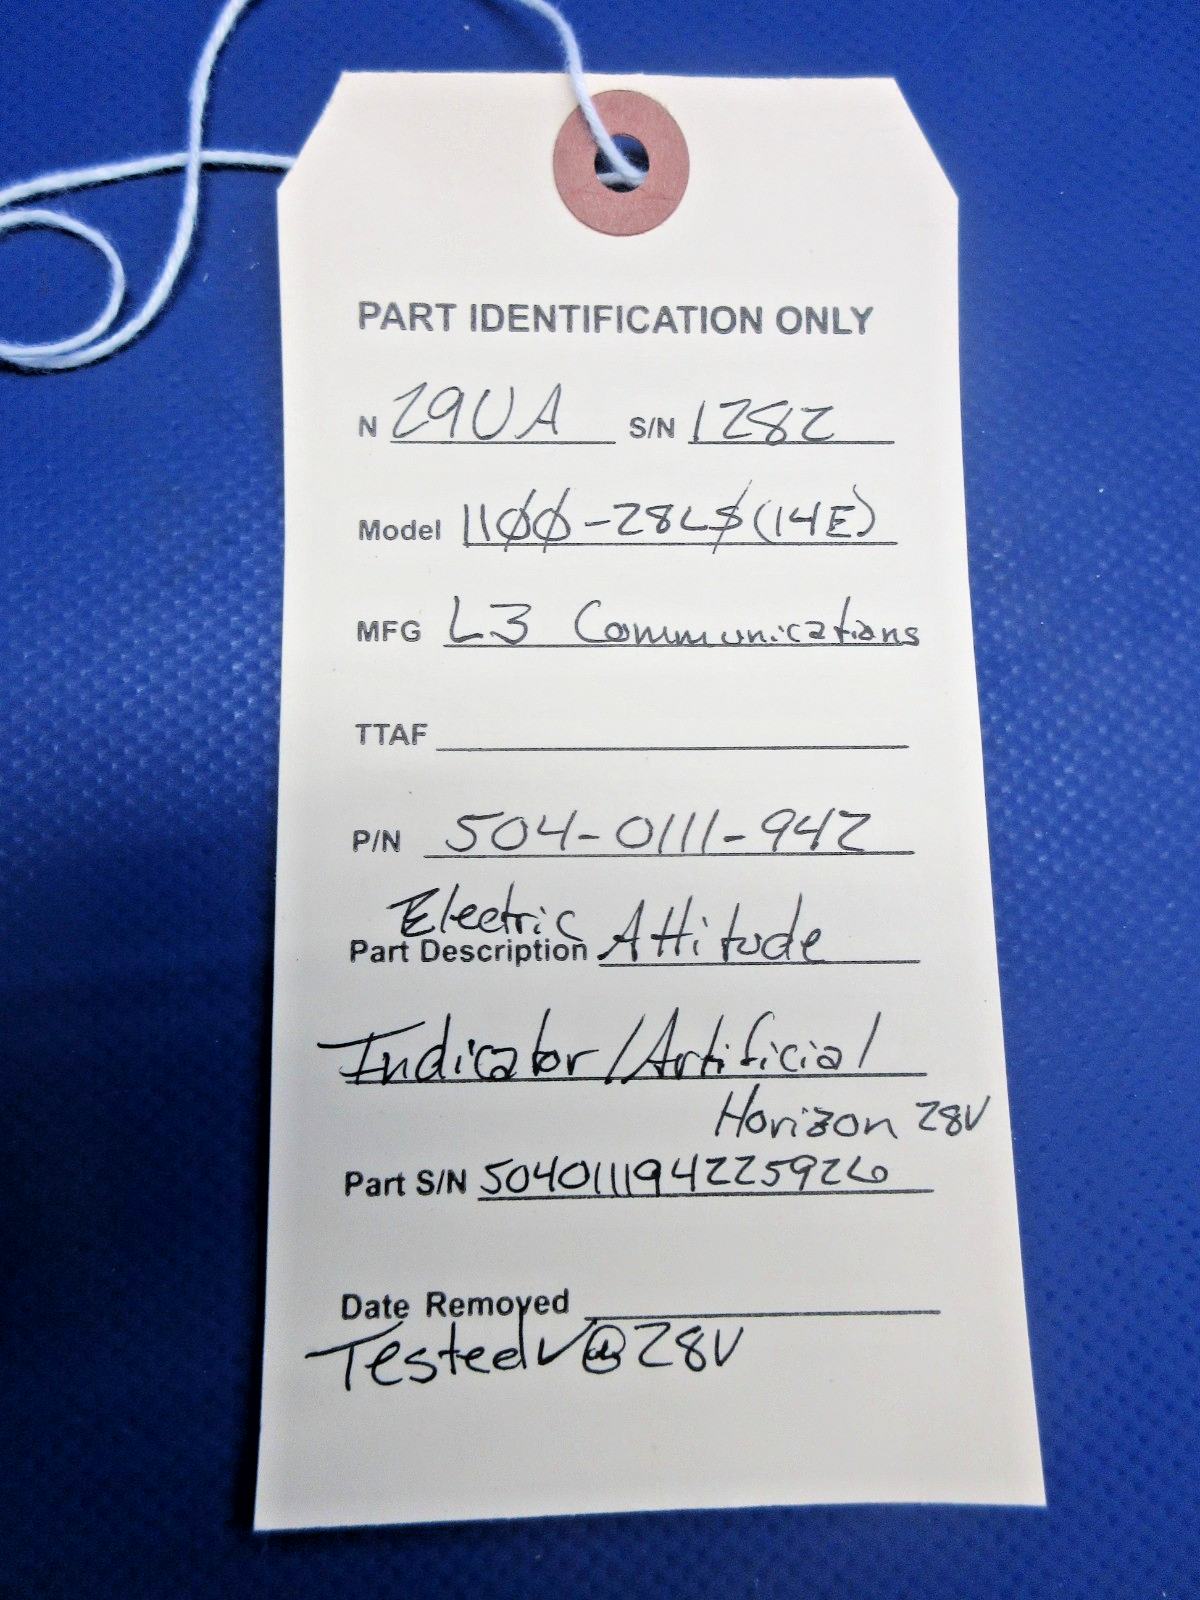 PART IDENTIFICATION ONLY
N 29UA S/N 1282
Model 1100-28LS(14E)
MFG L3 Communications
TTAF
P/N 504-0111-942
Electric
Part Description Attitude
Indicator/Artificial
Horizon 28V
Part S/N 504011194225926
Date Removed
Tested✓@28V